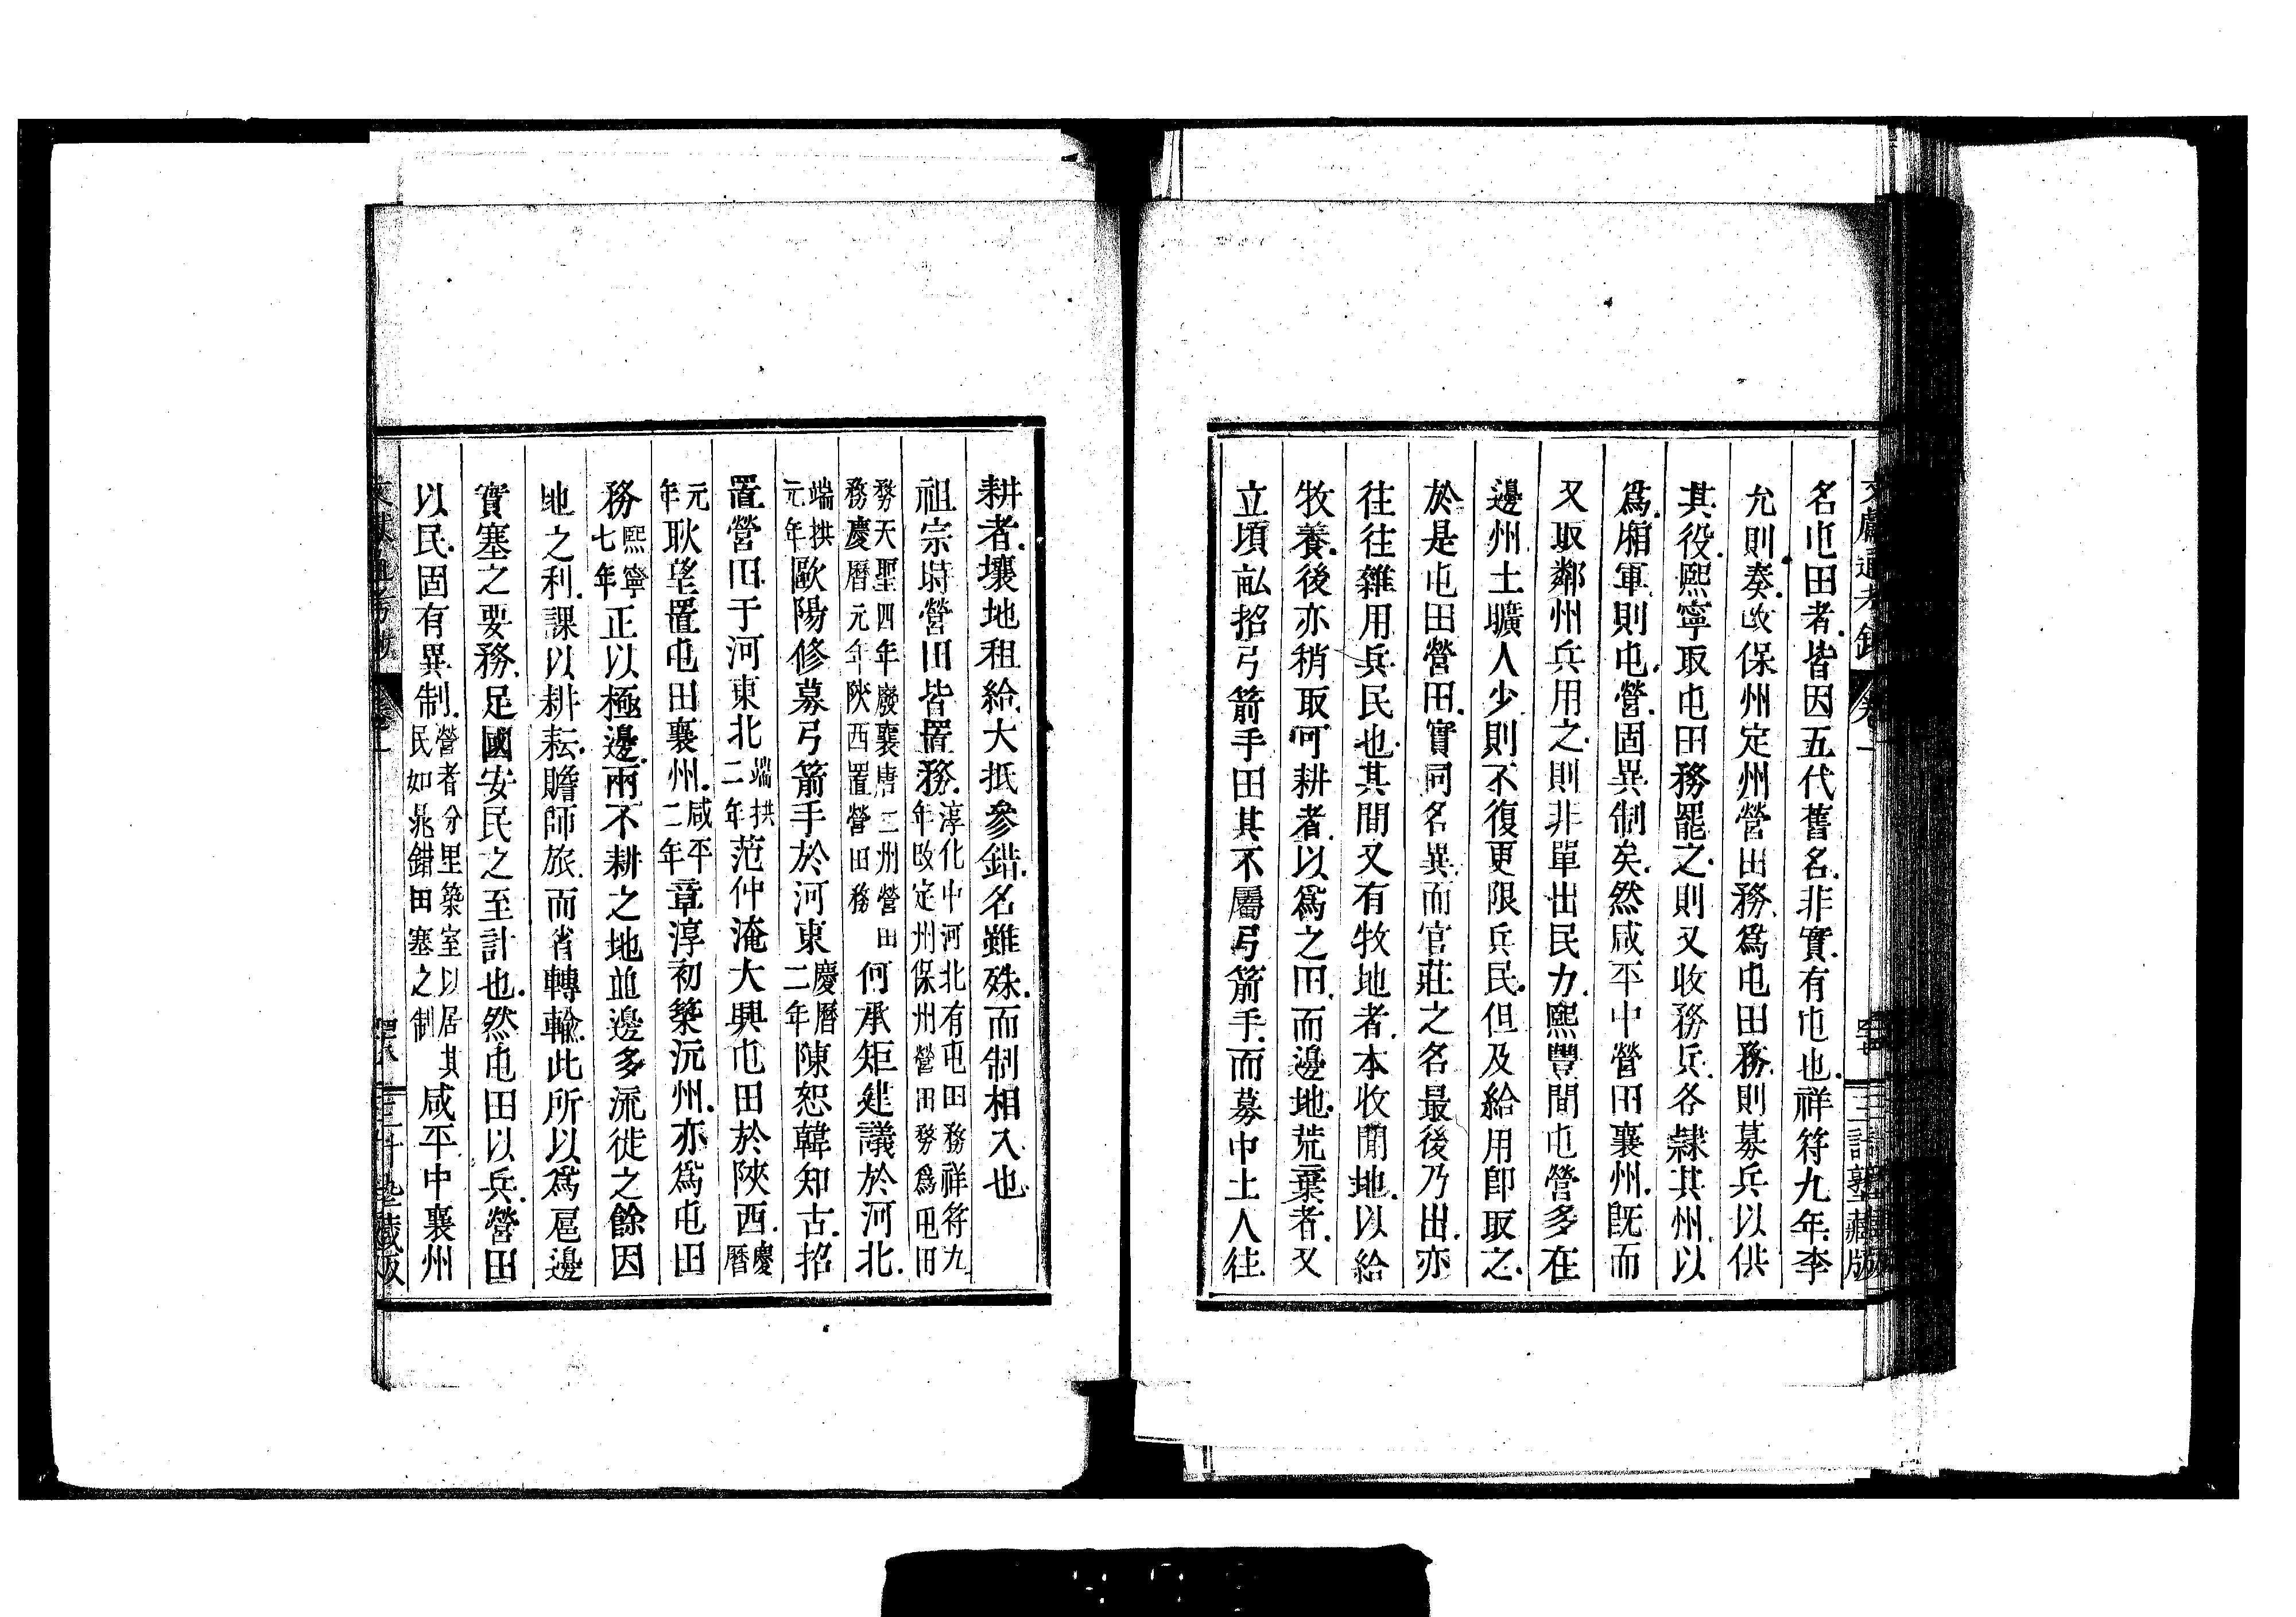 名屯田者皆因五代舊名非實有屯也祥符九年李
允則奏改保州定州營田務爲屯田務則募兵以供
其役熙寧取屯田務罷之則又收務兵各隸其州以
爲廂軍則屯營固異制矣然咸平中營田襄州既而
又取鄰州兵用之則非單出民力熙豐間屯營多在
邊州土曠人少則不復更限兵民但及給用即取之
於是屯田營田實同名異而官莊之名最後乃出亦
往往雜用兵民也其間又有牧地者本收閒地以給
牧養後亦稍取可耕者以爲之田而邊地荒棄者又
立頃畆招弓箭手田其不屬弓箭手而募中土人往
耕者壤地租給大抵參錯名雖殊而制相入也
祖宗時營田皆置務淳化中河北有屯田務祥符九年改定州保州營田務爲屯田
務天聖四年廢襄唐二州營田務慶曆元年陝西置營田務何承矩建議於河北
端拱元年歐陽修募弓箭手於河東慶曆二年陳恕韓知古招
置營田于河東北端拱二年范仲淹大興屯田於陝西慶曆
元年耿望置屯田襄州咸平二年章淳初築沅州亦爲屯田
務熙寧七年正以極邊兩不耕之地並邊多流徙之餘因
地之利課以耕耘贍師旅而省轉輸此所以爲扈邊
實塞之要務足國安民之至計也然屯田以兵營田
以民固有異制營者分里築室以居其民如晁錯田塞之制咸平中襄州